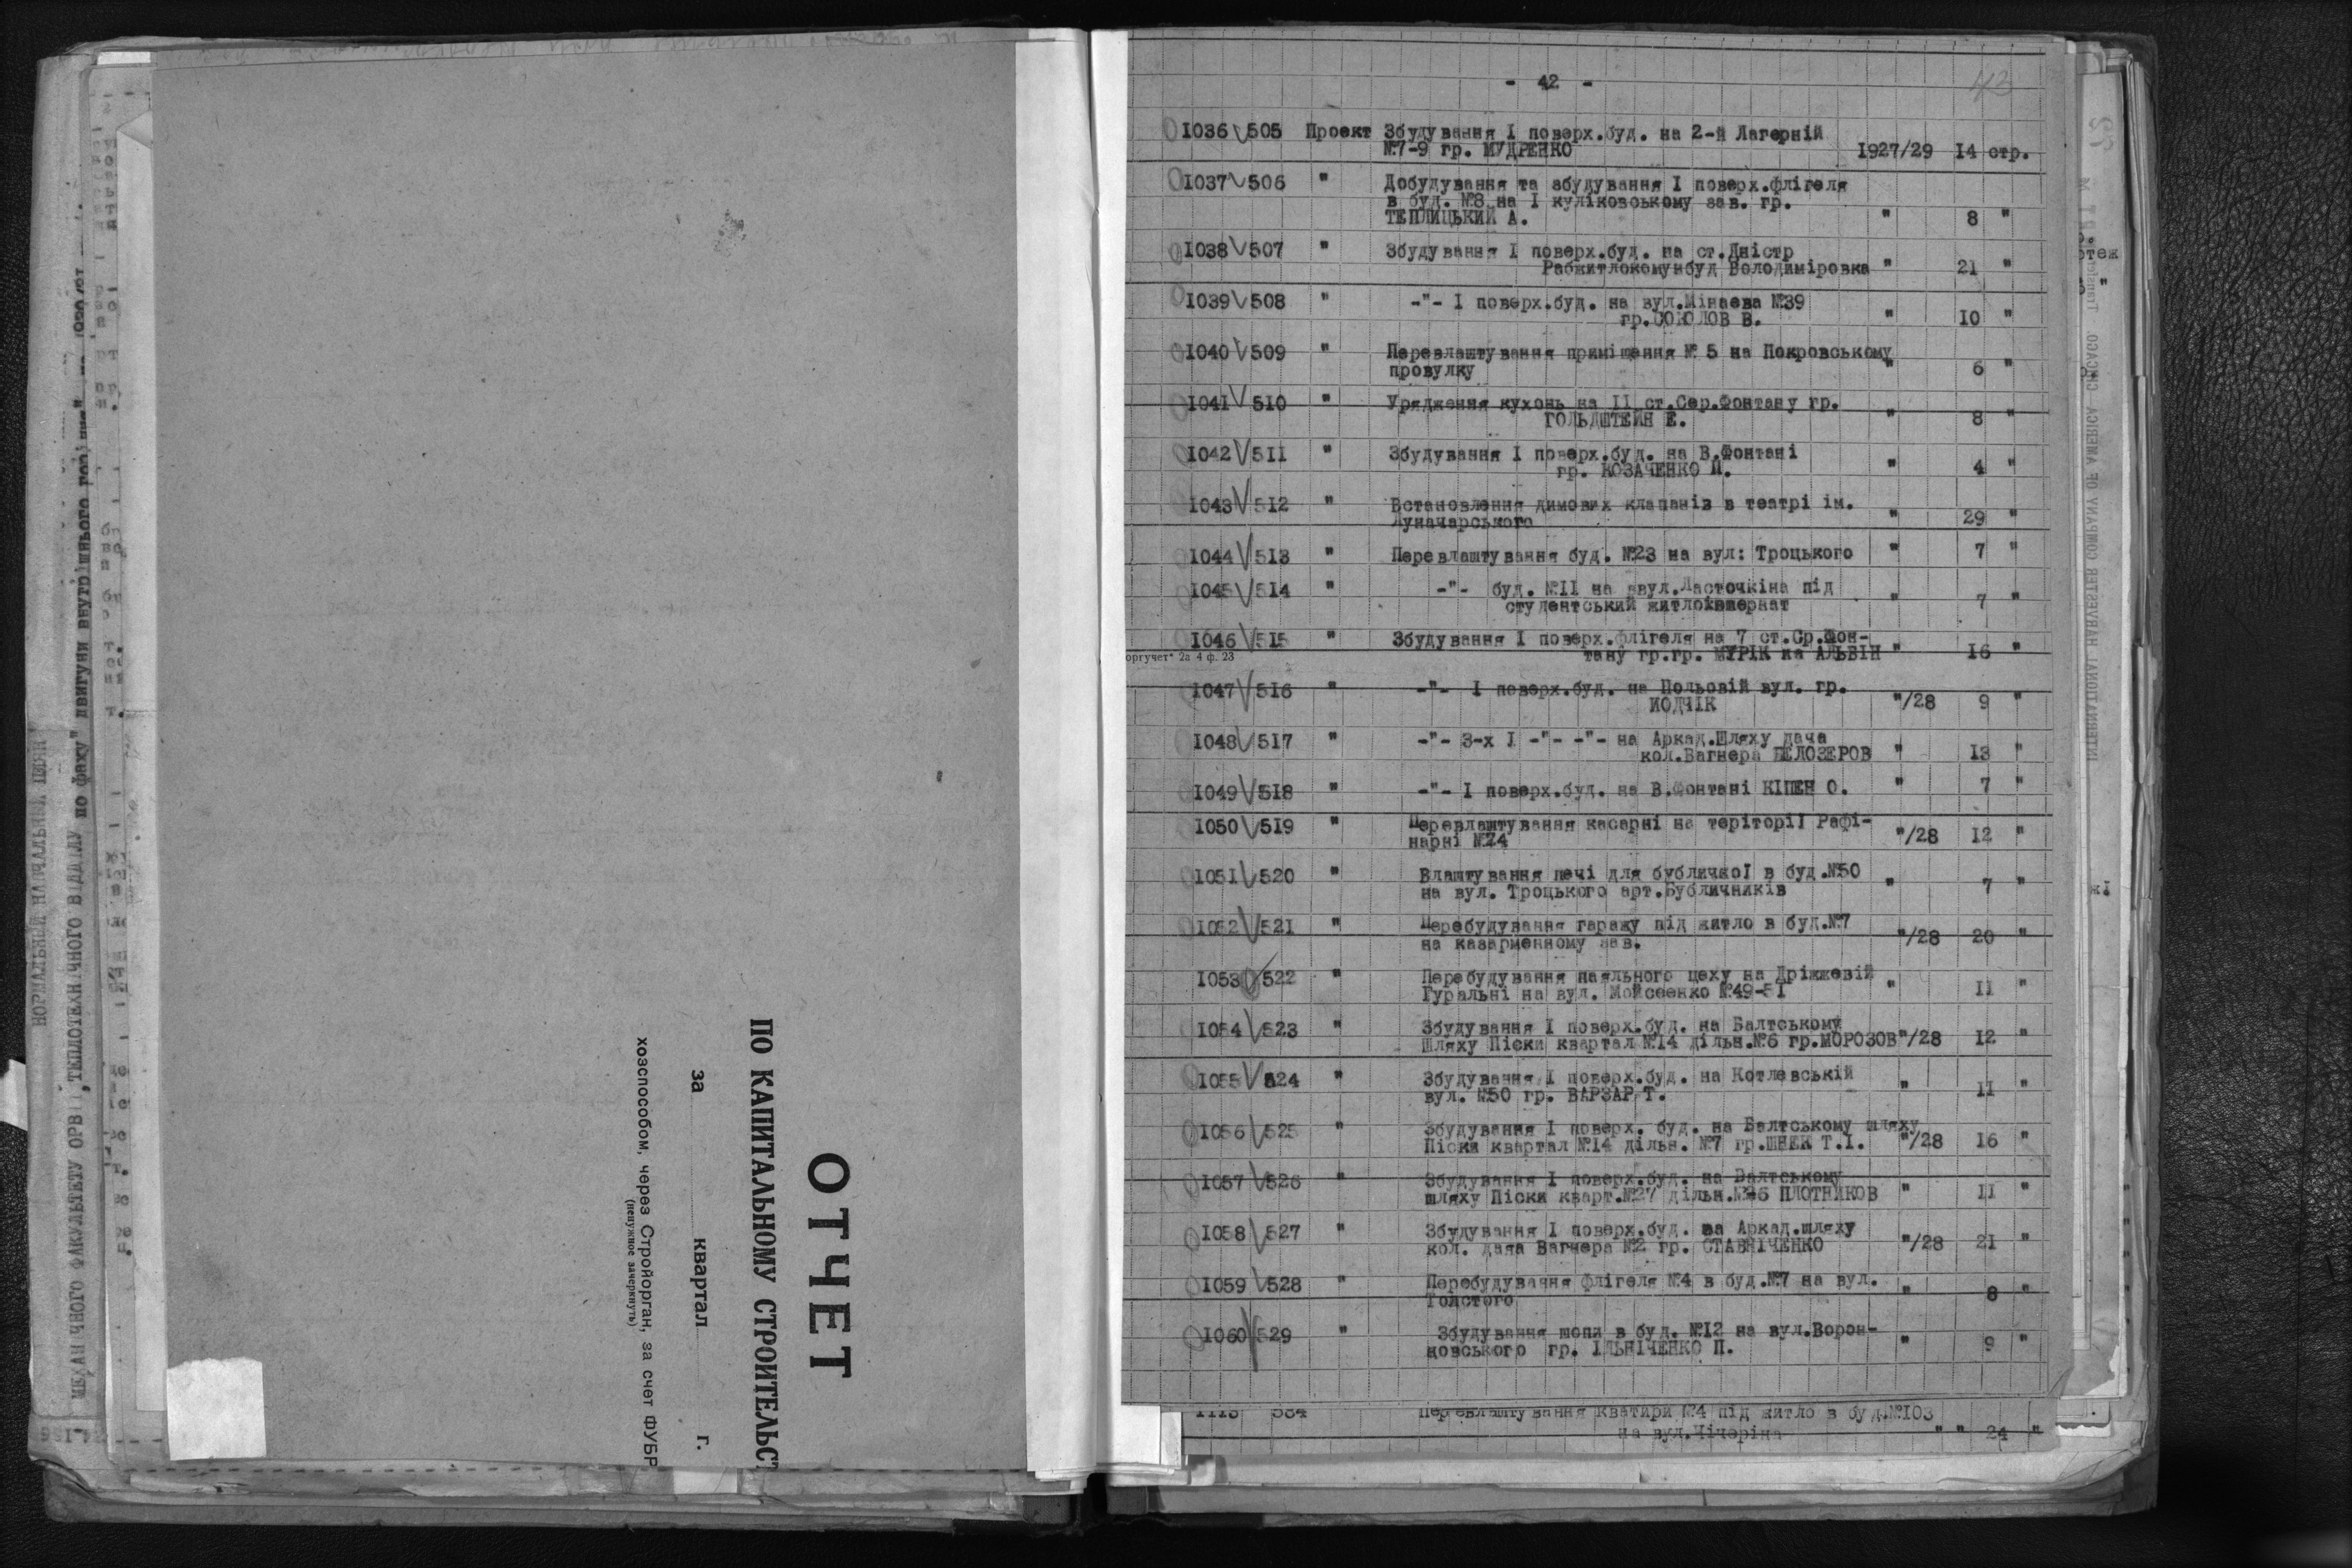 ОТЧЕТ
ПО КАПИТАЛЬНОМУ
за квартал г.
хозспособом, через Стройорган, за счет ФУБР
(ненужное зачеркнуть)
- 42 -
1036 505 Проект Збудування I поверх.буд. на 2-й Лагерній
№7-9 гр. МУДРЕНКО 1927/29 14 стр.
1037 506 " Добудування та збудування I поверх.флігеля
в буд. №8 на I куліковському зав. гр.
ТЕПЛИЦЬКИЙ А. " 8 "
1038 507 " Збудування I поверх.буд. на ст.Дністр
Рабжитлокомунбуд Володиміровка " 21 "
1039 508 " -"- I поверх.буд. на вул.Мінаева №39
гр.СОКОЛОВ В. " 10 "
1040 509 " Перевлаштування приміщення № 5 на Покровському
провулку " 6 "
1041 510 " Урядження кухонь на II ст.Сер.Фонтану гр.
ГОЛЬДШТЕЙН Е. " 8 "
1042 511 " Збудування I поверх.буд. на В.Фонтані
гр. КОЗАЧЕНКО " 4 "
1043 512 " Встановлення димових клапанів в театрі ім.
Луначарського " 29 "
1044 513 " Перевлаштування буд. №23 на вул: Троцького " 7 "
1045 514 " -"- буд. №11 на вул.Ласточкіна під
студентський " 7 "
1046 515 " Збудування I поверх.флігеля на 7 ст.Ср.Фон-
тану гр.гр. МУРІК на АЛЬБІН " 16 "
оргучет" 2а 4 ф. 23
1047 516 " -"- I поверх.буд. на Польовій вул. гр.
ИОДЧІК "/28 9 "
1048 517 " -"- 3-х I -"- -"- на Аркад.Шляху дача
кол.Вагнера БЕЛОЗЕРОВ " 13 "
1049 518 " -"- I поверх.буд. на В.Фонтані КІПЕН О. " 7 "
1050 519 " Перевлаштування касарні на теріторії Рафі-
нарні №74 "/28 12 "
1051 520 " Влаштування печі для бубличної в буд.№50
на вул. Троцького арт.Бубличників " 7 "
1052 521 " Перебудування гаражу під житло в буд.№7
на казарменному зав. "/28 20 "
1053 522 " Перебудування паяльного цеху на Дріжжевій
Гуральні на вул. Мойсеенко №49-51 " 11 "
1054 523 " Збудування I поверх.буд. на Балтському
Шляху Піски квартал №14 дільн.№6 гр.МОРОЗОВ "/28 12 "
1055 524 " Збудування I поверх.буд. на Котлевській
вул. №50 гр. ВАРЗАР Т. " 11 "
1056 525 " Збудування I поверх. буд. на Балтському шляху
Піски квартал №14 дільн. №7 гр.ШНЕК Т.І. "/28 16 "
1057 526 " Збудування I поверх.буд. на Балтському
шляху Піски кварт.№27 дільн. ПЛОТНИКОВ " 11 "
1058 527 " Збудування I поверх.буд. на Аркад.шляху
кол. дача Вагнера №2 гр. СТАВНІЧЕНКО "/28 21 "
1059 528 " Перебудування флігеля №4 в буд.№7 на вул.
Толстого " 8 "
1060 529 " Збудування шопи в буд. №12 на вул.Ворон-
цовського гр. ІЛЬНІЧЕНКО П. " 9 "
1113 584 Перевлаштування кватири №4 під житло в буд.№103
на вул.Чічеріна " " 24 "